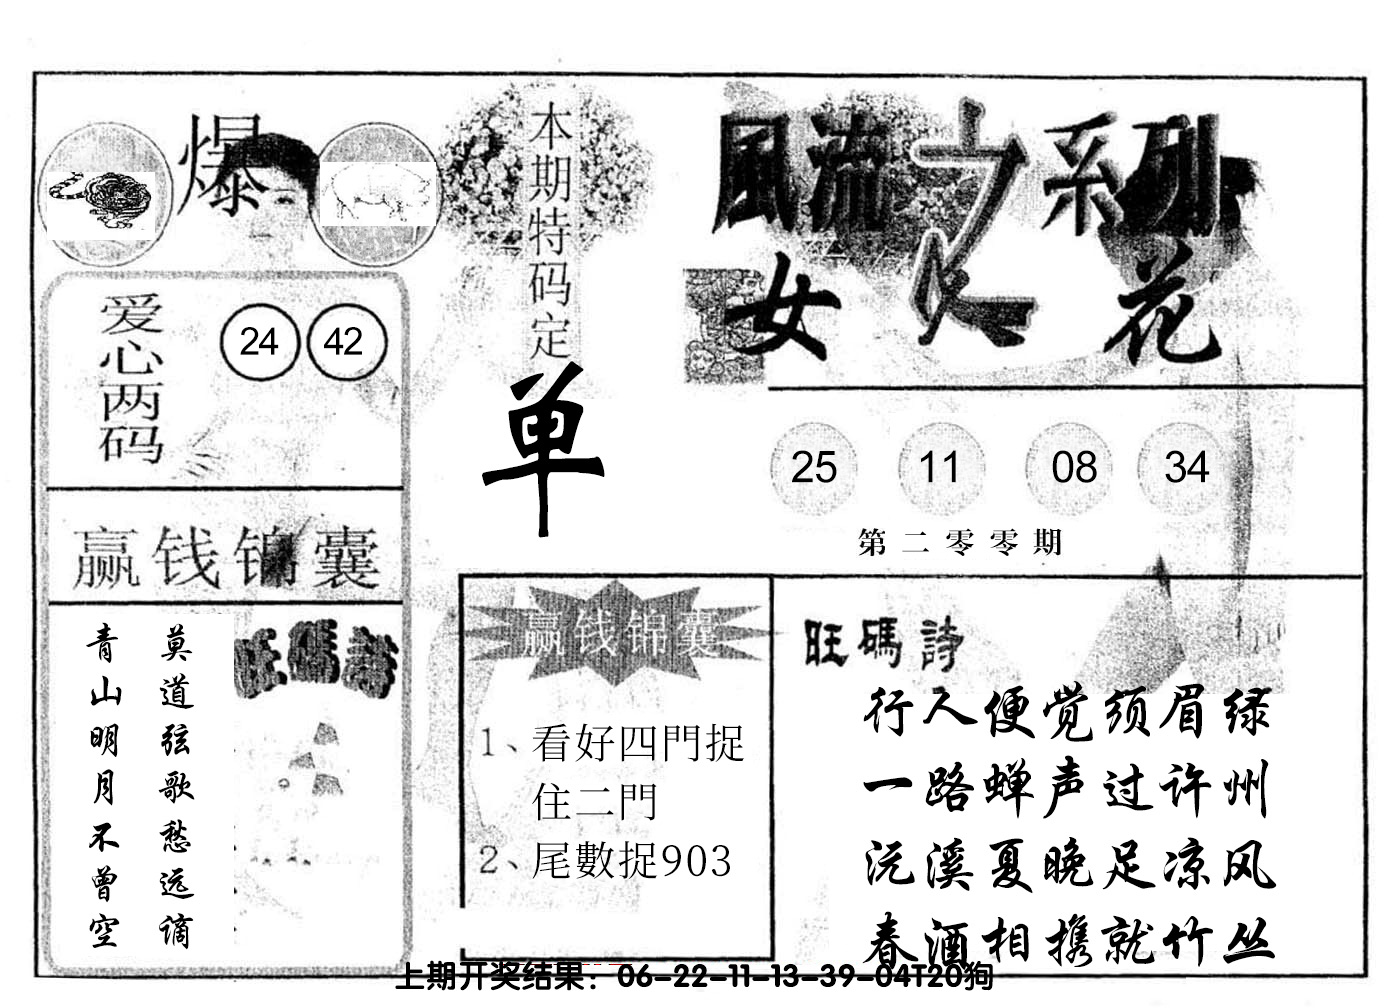 爆
本期特码定
单
風流之系列
女人花
爱心两码
24 42
赢钱锦囊
莫道弦歌愁远谪
青山明月不曾空
旺碼詩
25 11 08 34
第二零零期
赢钱锦囊
1、看好四門捉
住二門
2、尾數捉903
旺碼詩
行人便觉须眉绿
一路蝉声过许州
沅溪夏晚足凉风
春酒相携就竹丛
上期开奖结果：06-22-11-13-39-04T20狗